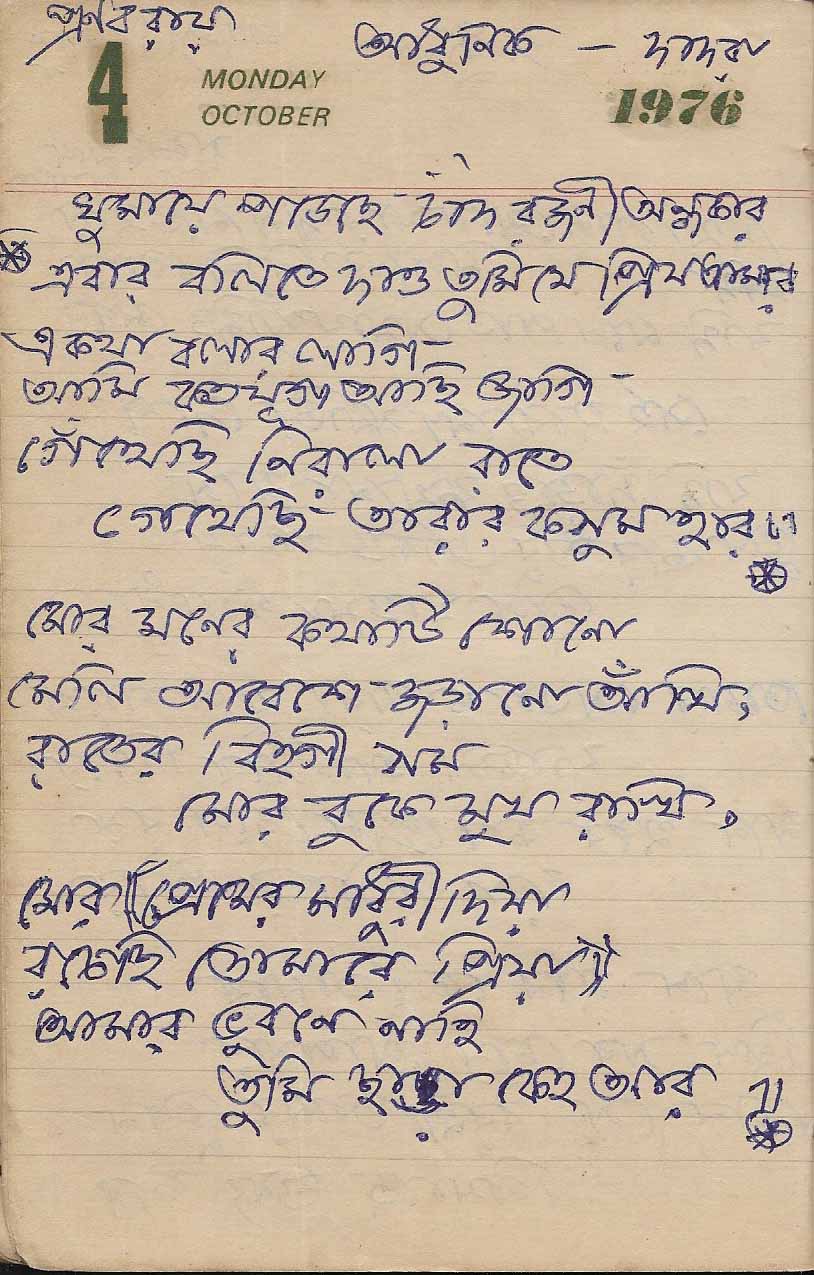 প্রণব রায়
আধুনিক — দাদরা
4 MONDAY OCTOBER 1976
ঘুমায়ে পড়েছে চাঁদ রজনী অন্ধকার
এবার বলিতে দাও তুমি যে প্রিয় আমার
একথা বলার লাগি
আমি কতযুগ আছি জাগি
গেঁথেছি নিরালা রাতে
গেথেছি তারার কুসুম হার ॥
মোর মনের কথাটি শোনো
মেলি আবেশে জড়ানো আঁখি,
রাতের বিহগী সম
মোর বুকে মুখ রাখি,
মোর (প্রেমের মাধুরী দিয়া
রচেছি তোমারে প্রিয়া)
আমার ভুবনে নাহি
তুমি ছাড়া কেহ আর ॥